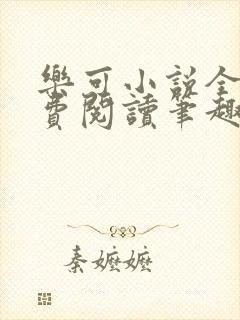 樂可小說全
費閱讀筆趣
秦嬤嬤